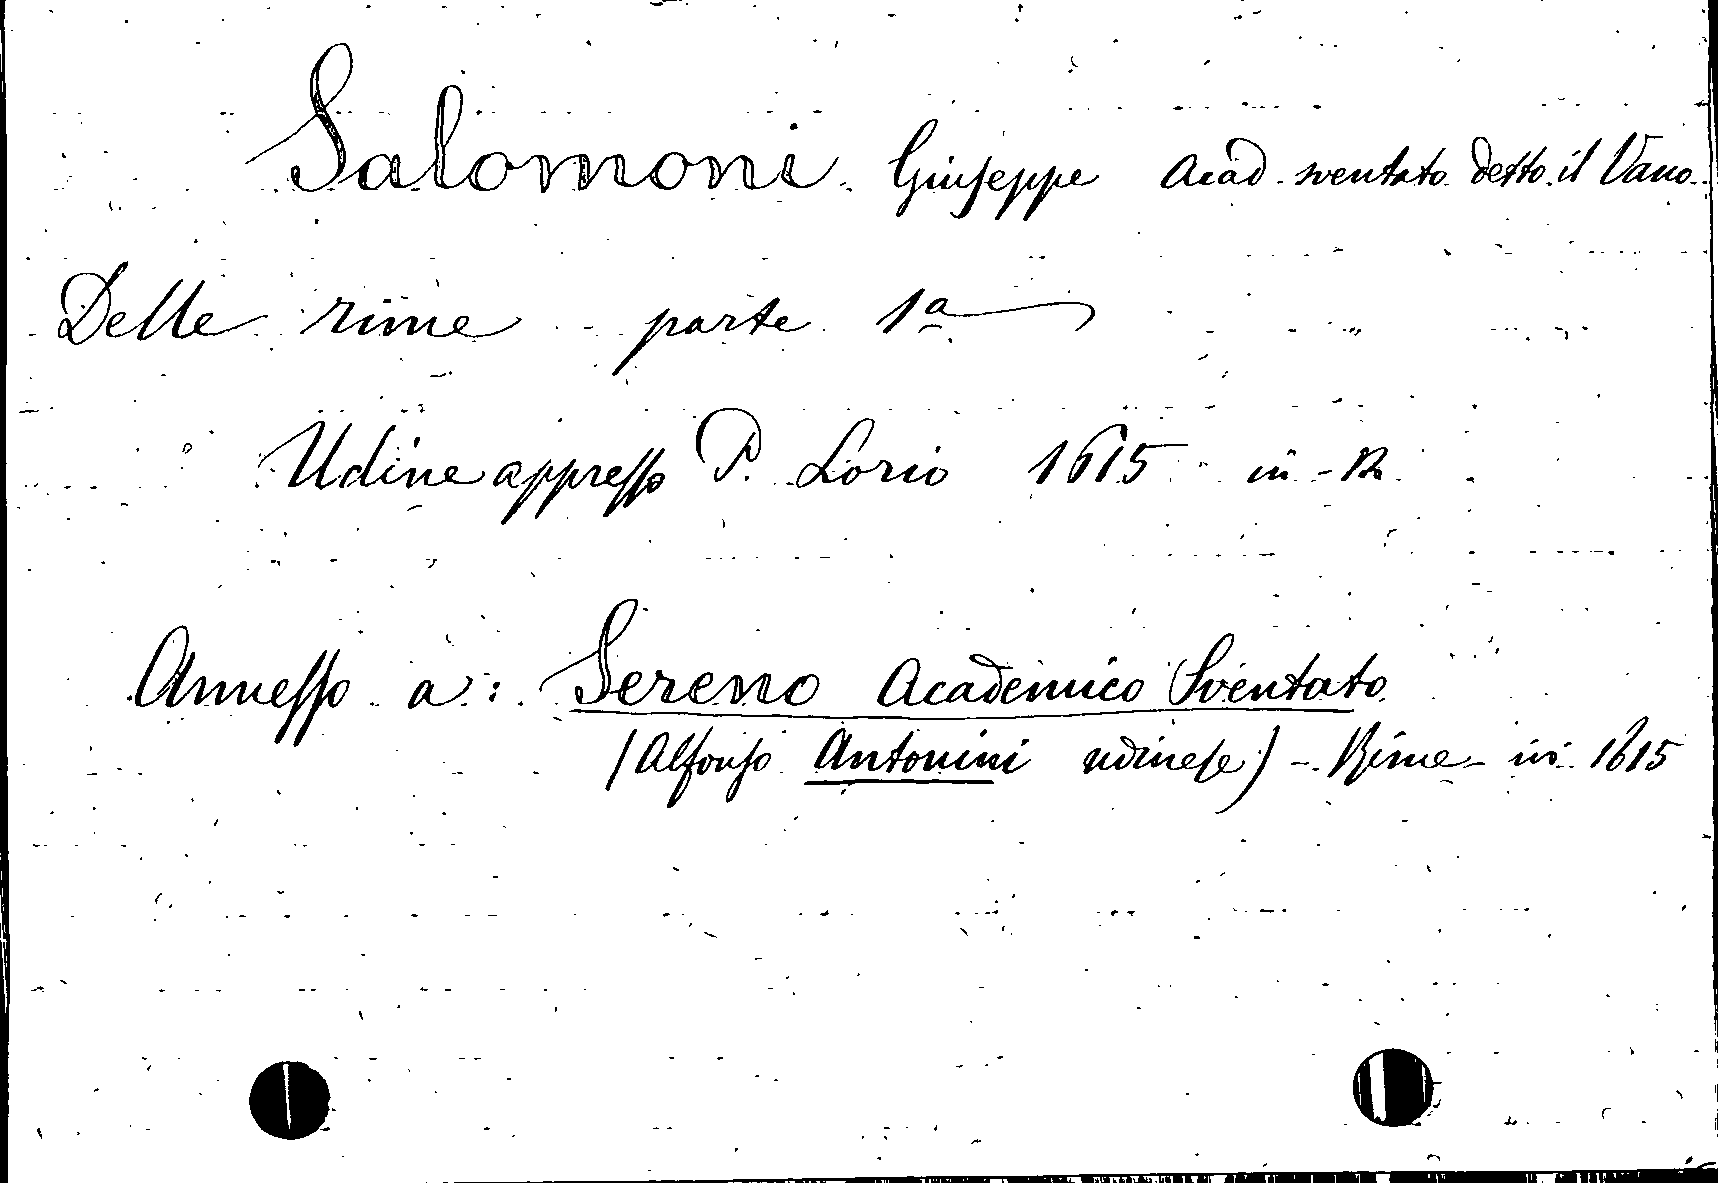 Salomoni Giuseppe Acad. sventato detto il Vano
Delle rime parte 1a
Udine appresso P. Lorio 1615 in-12
Annesso a: Sereno Academico Sventato
(Alfonso Antonini udinese) - Rime - in 1615